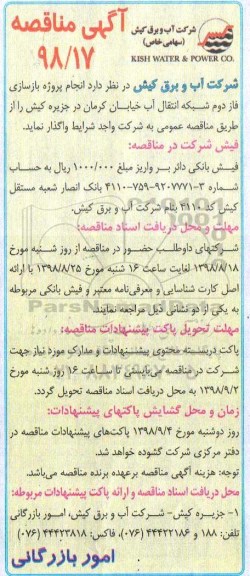 آگهی مناقصه
۹۸/۱۷
شرکت آب و برق کیش
(سهامی خاص)
KISH WATER & POWER CO.
شرکت آب و برق کیش در نظر دارد انجام پروژه بازسازی
فاز دوم شبکه انتقال آب خیابان کرمان در جزیره کیش را از
طریق مناقصه عمومی به شرکت واجد شرایط واگذار نماید.
فیش شرکت در مناقصه:
فیش بانکی دائر بر واریز مبلغ ۱/۰۰۰/۰۰۰ ریال به حساب
شماره ۳-۹۲۰۷۷۷۱-۷۵۹-۴۱۱۰۰ بانک انصار شعبه مستقل
کیش کد ۴۱۱۰ بنام شرکت آب و برق کیش.
مهلت و محل دریافت اسناد مناقصه:
شرکتهای داوطلب حضور در مناقصه از روز شنبه مورخ
۱۳۹۸/۸/۱۸ لغایت ساعت ۱۶ شنبه مورخ ۱۳۹۸/۸/۲۵ با ارائه
اصل کارت شناسایی و معرفی‌نامه معتبر و فیش بانکی مربوطه
به یکی از دو نشانی ذیل مراجعه نمایند.
مهلت تحویل پاکت پیشنهادات مناقصه:
پاکت دربسته محتوی پیشنهادات و مدارک مورد نیاز جهت
شرکت در مناقصه می‌بایستی تا ساعت ۱۶ روز شنبه مورخ
۱۳۹۸/۹/۲ به محل دریافت اسناد مناقصه تحویل گردد.
زمان و محل گشایش پاکتهای پیشنهادات:
روز دوشنبه مورخ ۱۳۹۸/۹/۴ پاکت‌های پیشنهادات مناقصه در
دفتر مرکزی شرکت گشوده خواهد شد.
توجه: هزینه آگهی مناقصه برعهده برنده مناقصه می‌باشد.
محل دریافت اسناد مناقصه و ارائه پاکت پیشنهادات مربوطه:
۱- جزیره کیش- شرکت آب و برق کیش، امور بازرگانی
تلفن: ۱۸۸ و ۴۴۴۲۲۱۸۶ (۰۷۶)، فاکس: ۴۴۴۲۳۸۱۸ (۰۷۶)
امور بازرگانی